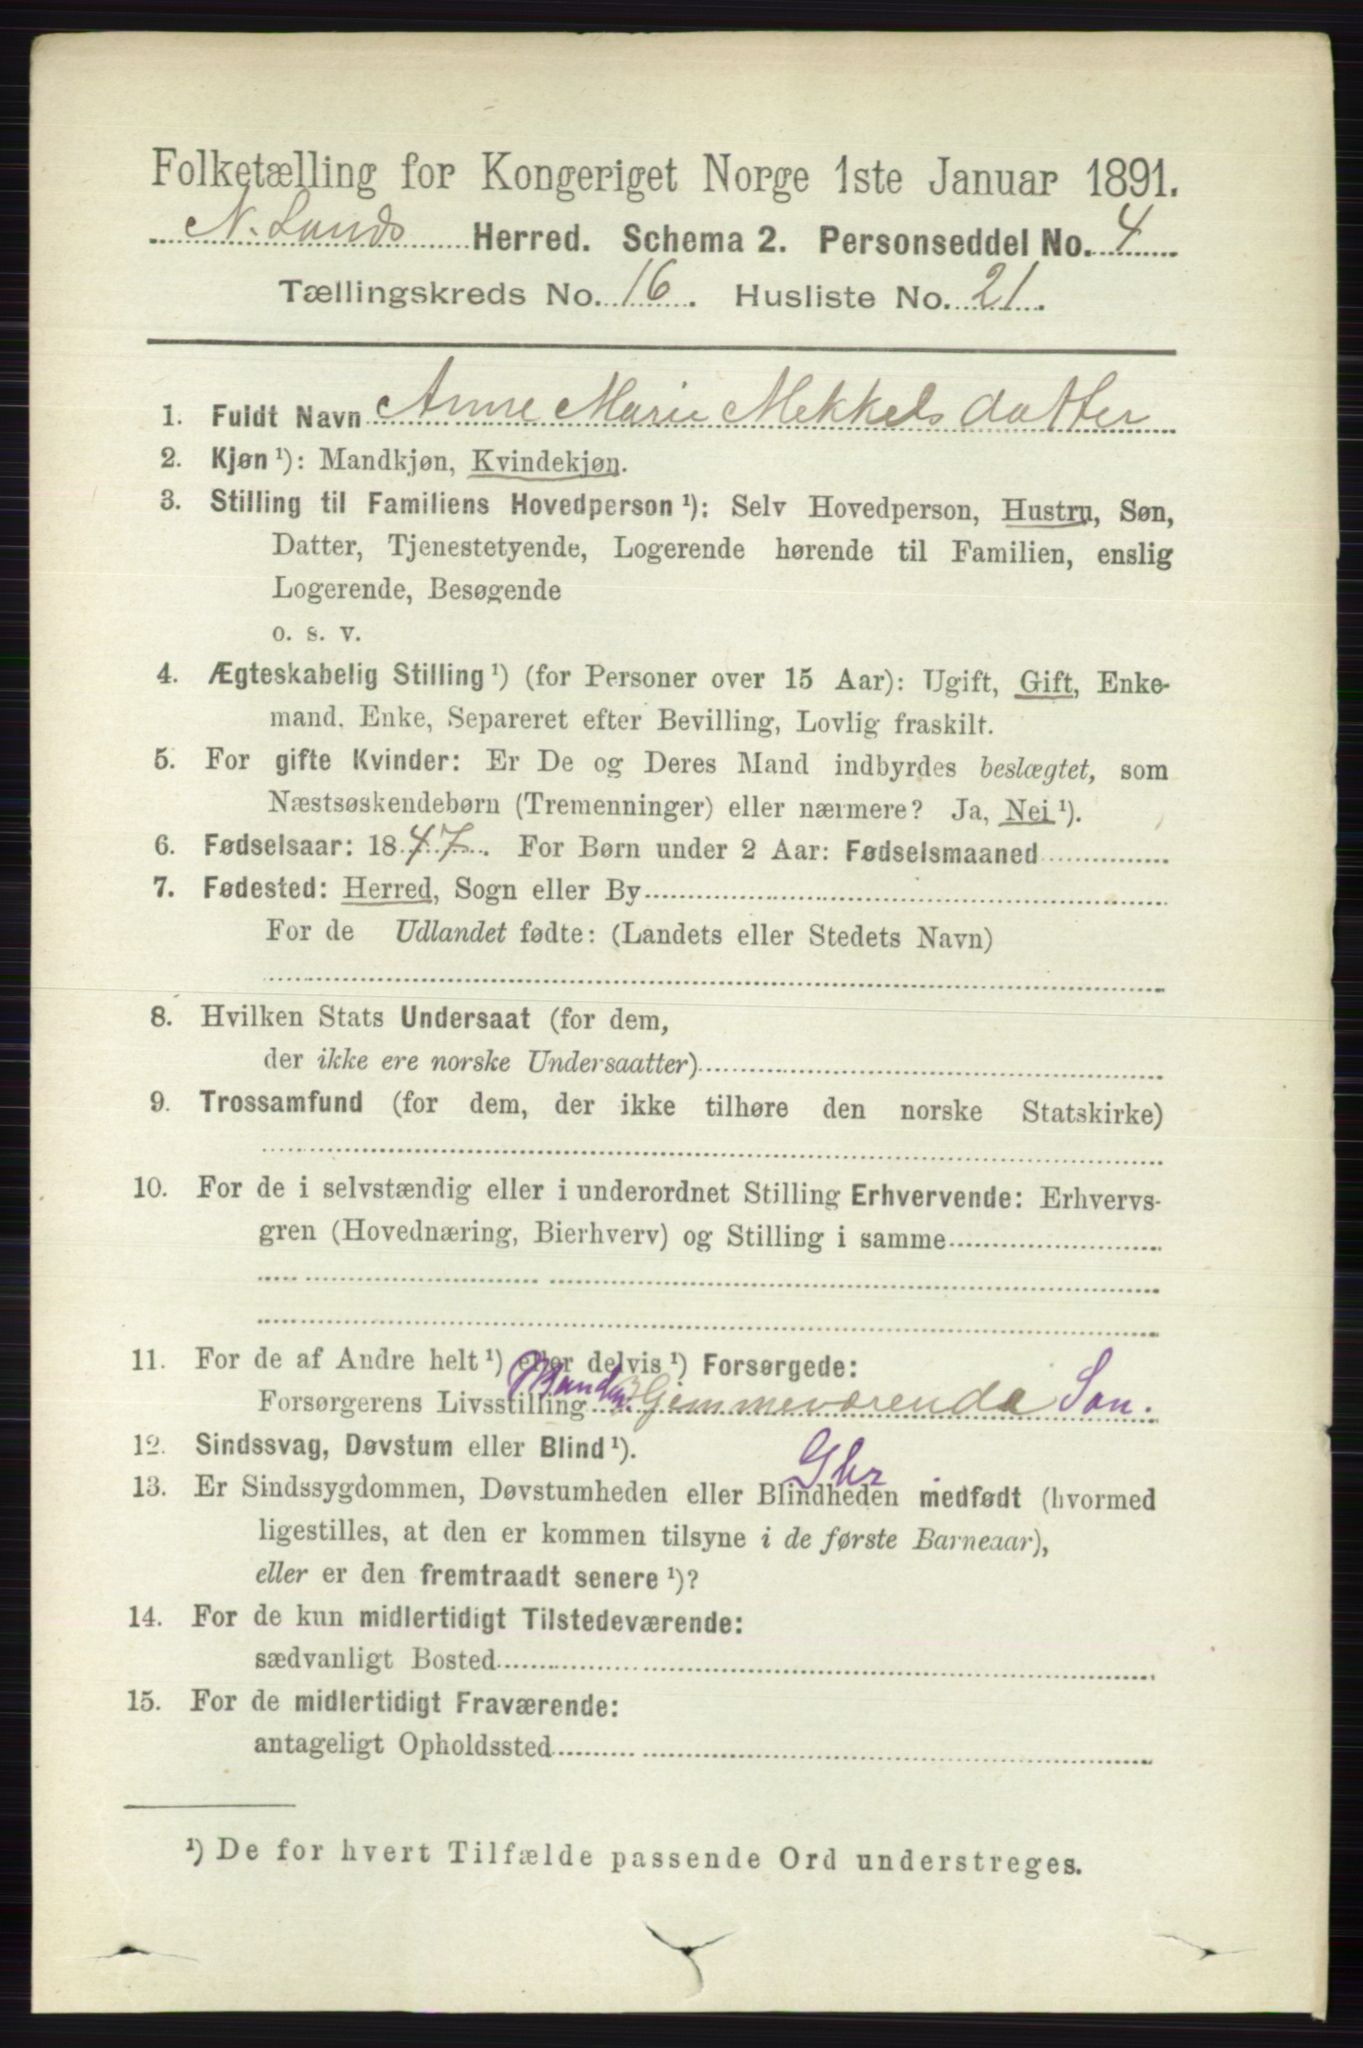 Folketælling for Kongeriget Norge 1ste Januar 1891.
N. Lands Herred. Schema 2. Personseddel No. 4
Tællingskreds No. 16. Husliste No. 21.
1. Fuldt Navn Anne Marie Mekkelsdatter
2. Kjøn ¹): Mandkjøn, Kvindekjøn.
3. Stilling til Familiens Hovedperson ¹): Selv Hovedperson, Hustru, Søn,
Datter, Tjenestetyende, Logerende hørende til Familien, enslig
Logerende, Besøgende
o. s. v.
4. Ægteskabelig Stilling ¹) (for Personer over 15 Aar): Ugift, Gift, Enke-
mand, Enke, Separeret efter Bevilling, Lovlig fraskilt.
5. For gifte Kvinder: Er De og Deres Mand indbyrdes beslægtet, som
Næstsøskendebørn (Tremenninger) eller nærmere? Ja, Nei ¹).
6. Fødselsaar: 1847. For Børn under 2 Aar: Fødselsmaaned
7. Fødested: Herred, Sogn eller By
For de Udlandet fødte: (Landets eller Stedets Navn)
8. Hvilken Stats Undersaat (for dem,
der ikke ere norske Undersaatter)
9. Trossamfund (for dem, der ikke tilhøre den norske Statskirke)
10. For de i selvstændig eller i underordnet Stilling Erhvervende: Erhvervs-
gren (Hovednæring, Bierhverv) og Stilling i samme
11. For de af Andre helt ¹) eller delvis ¹) Forsørgede:
Forsørgerens Livsstilling Gjemmeværende Søn.
12. Sindssvag, Døvstum eller Blind ¹).
13. Er Sindssygdommen, Døvstumheden eller Blindheden medfødt (hvormed
ligestilles, at den er kommen tilsyne i de første Barneaar),
eller er den fremtraadt senere ¹)?
14. For de kun midlertidigt Tilstedeværende:
sædvanligt Bosted
15. For de midlertidigt Fraværende:
antageligt Opholdssted
¹) De for hvert Tilfælde passende Ord understreges.